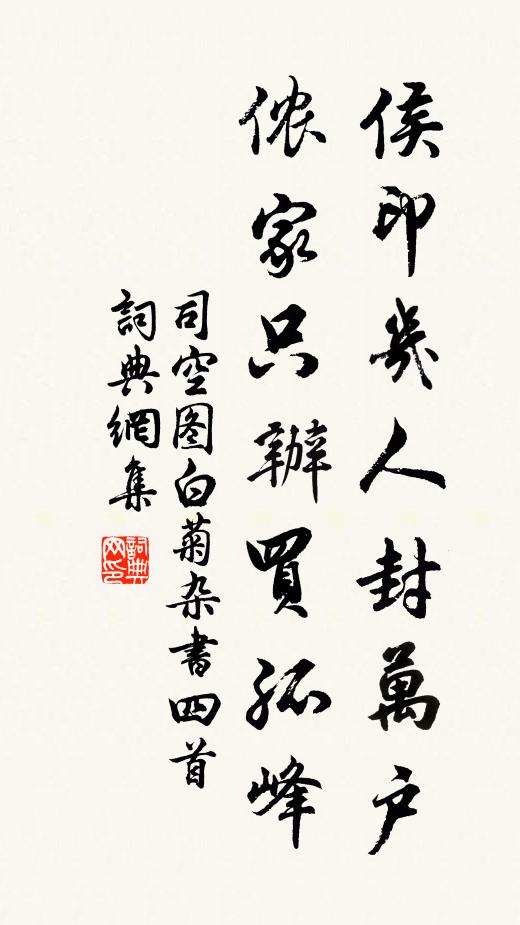 侯印幾人封萬户
侬家只辦買孤峰
司空图白菊杂書四首
詞典網集
詞典网印